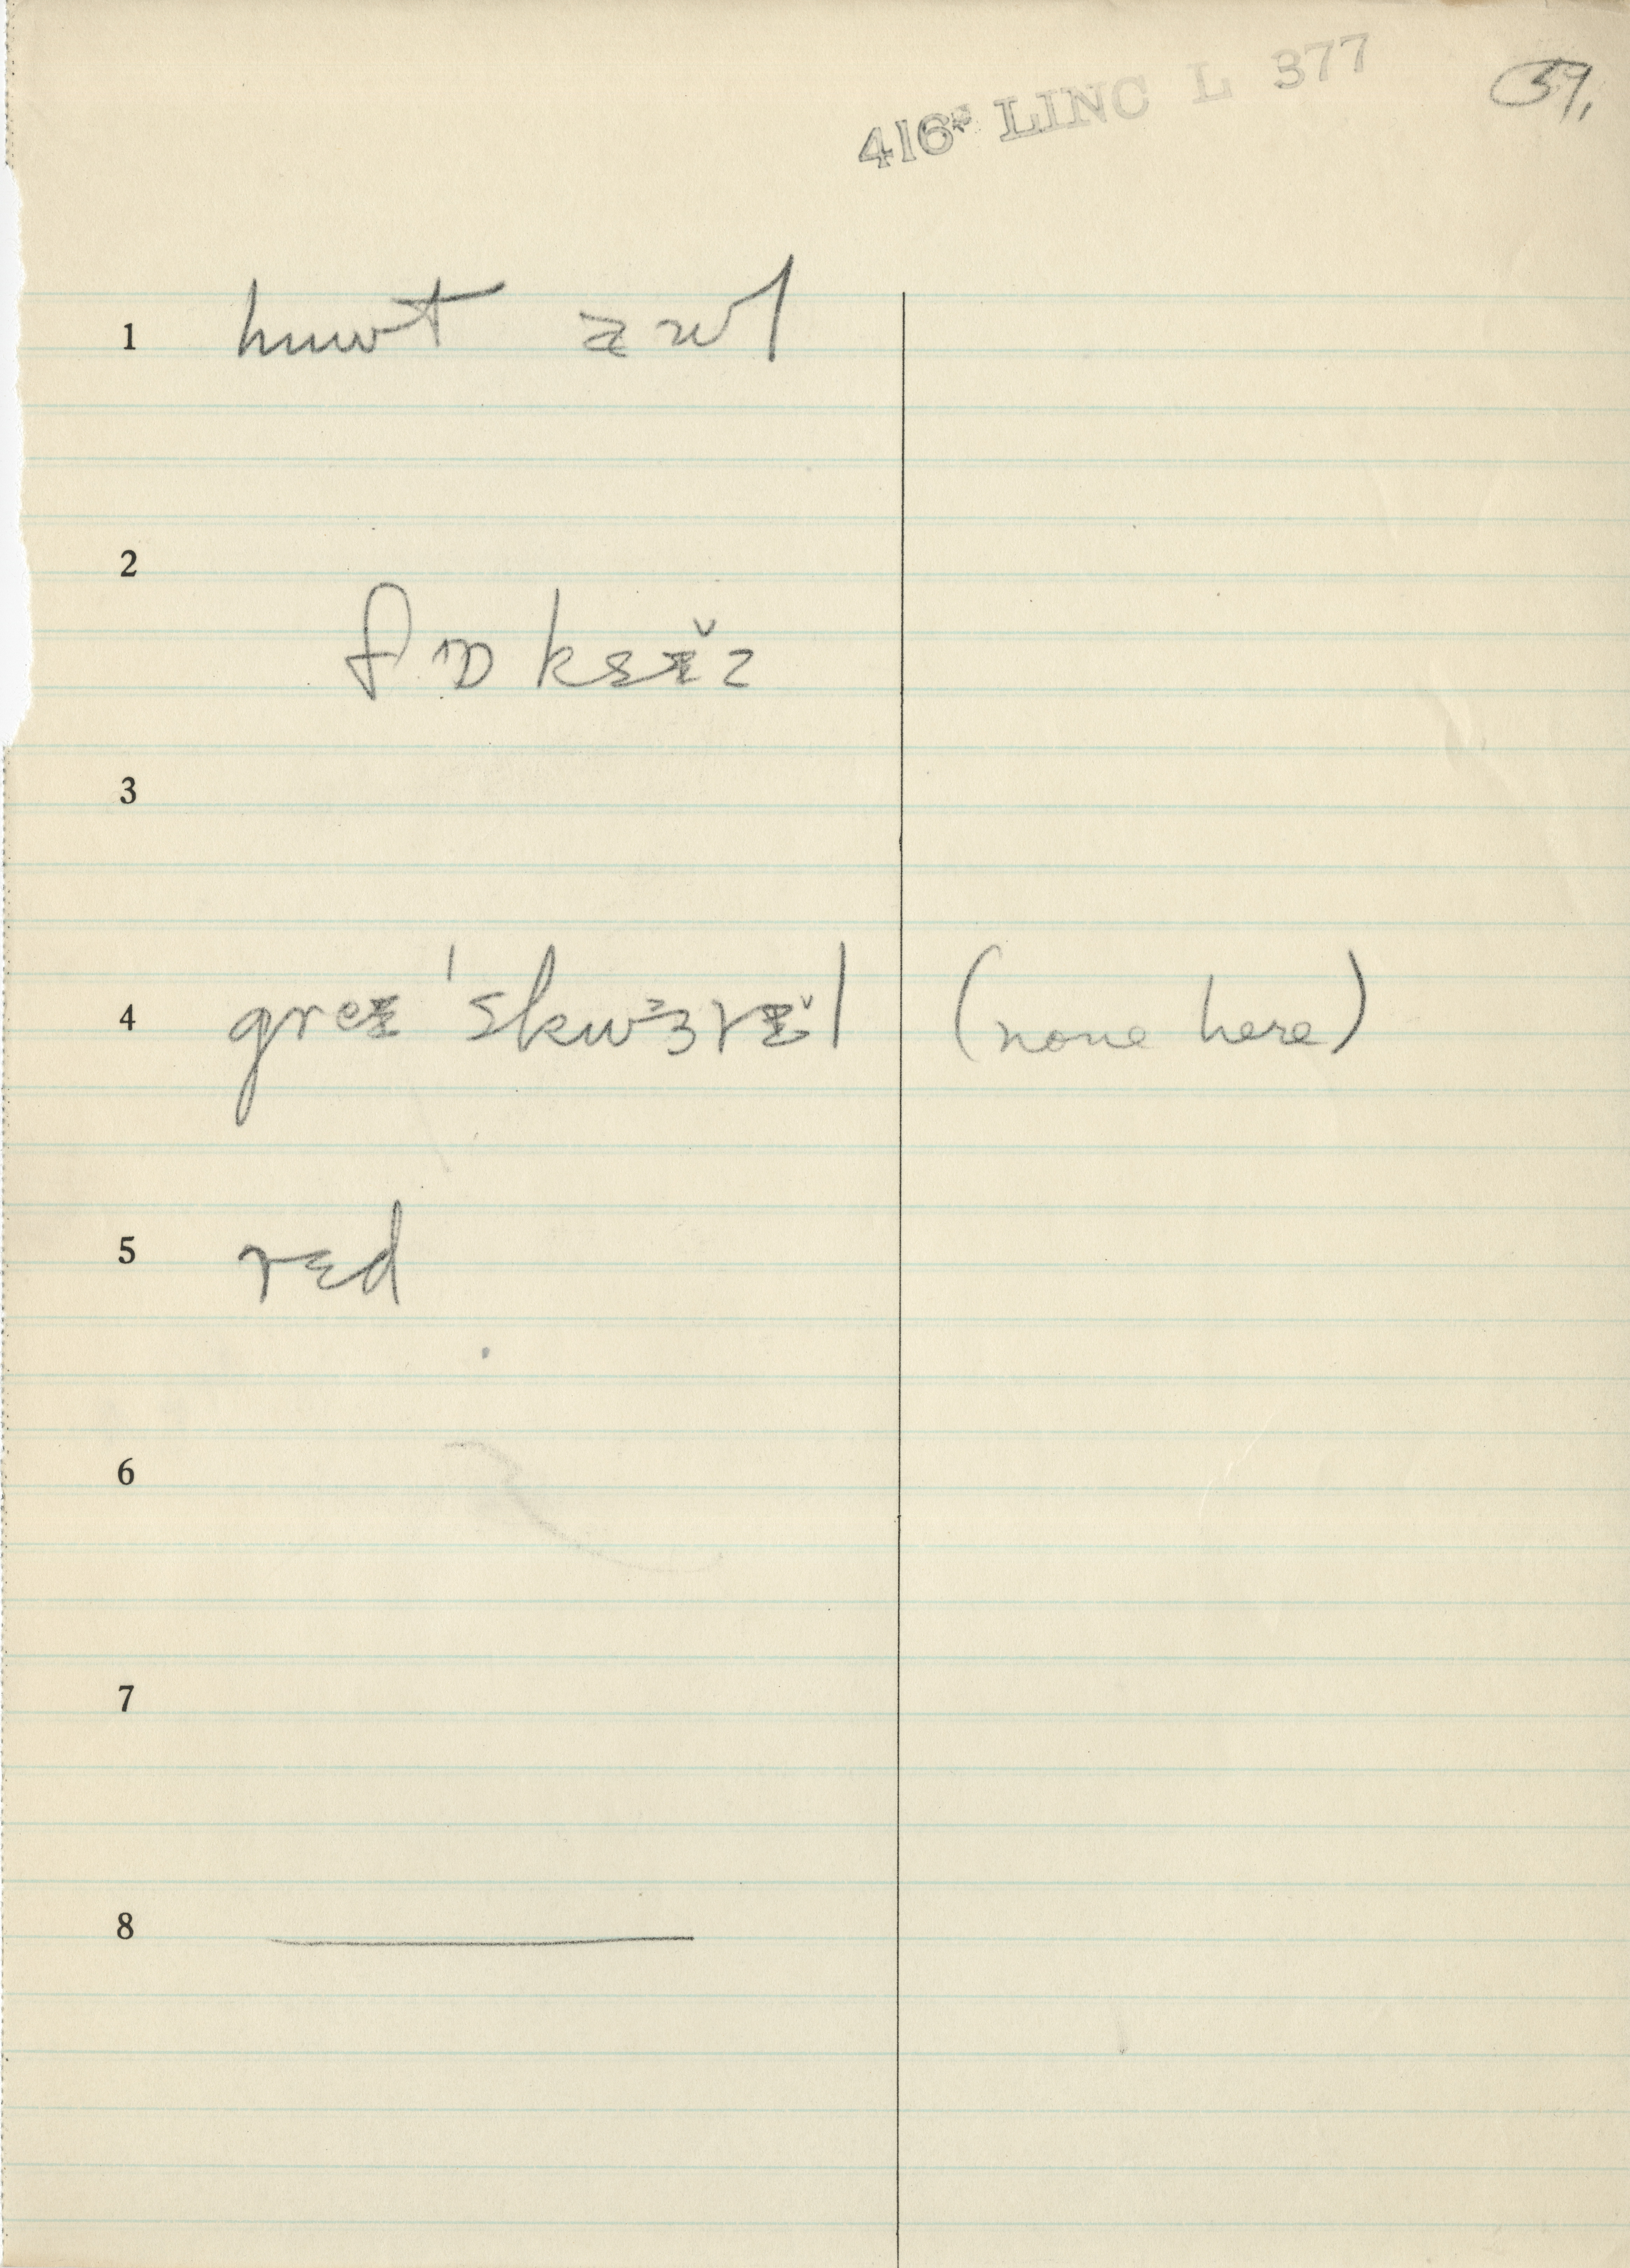 416* LINC L 377
39.
1 huwt aᵻwl
2
fɒksɨ̌z
3
4 greɨ ˈskwɜrɨ̌l (none here)
5 rɛd
6
7
8